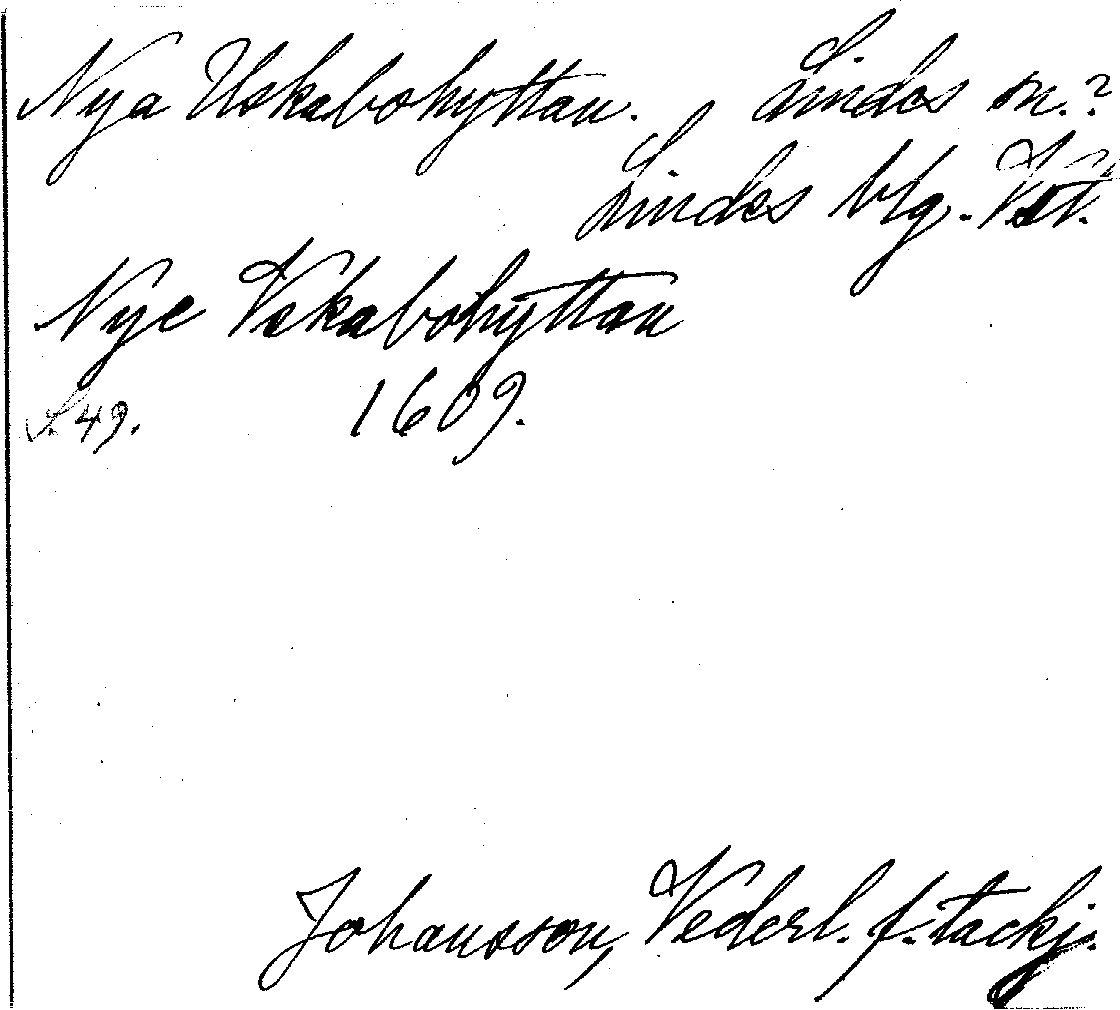 Nya Uskabohyttan. Lindes sn.?
Lindes blg. Vstm.
Nye Vskabohyttan
S. 49. 1609.
Johansson, Vederl. f. tackj.